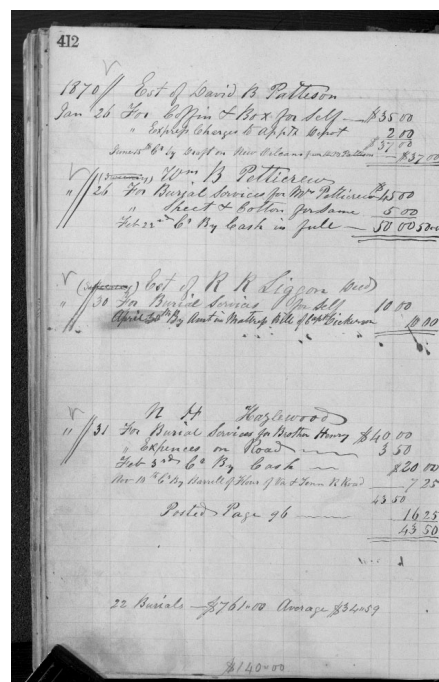 412
1870 Est of David B Patteson
Jan 26 For Coffin & Box for Self — $35 00
" Express Charges to Appts Depot 2 00
$37 00
June 15th Cr by Draft on New Orleans — $37 00
Wm B Petticrew
" 26 For Burial Services for Mrs Petticrew $45 00
" Sheet & Cotton for Same 5 00
Feb 22nd Cr By Cash in full — 50 00 50 00
Est of R R Liggon Decd
" 30 For Burial Services for Self 10 00
April 30th By Amt in 10 00
N H Hazlewood
" 31 For Burial Services for Brother Henry $40 00
" Expences on Road — 3 50
Feb 3rd Cr By Cash — $20 00
Nov 18th Cr By Barrell of Flour of Va & Tenn R Road 7 25
43 50
Posted Page 96 — 16 25
43 50
22 Burials — $761.00 Average $34.59
$140.00